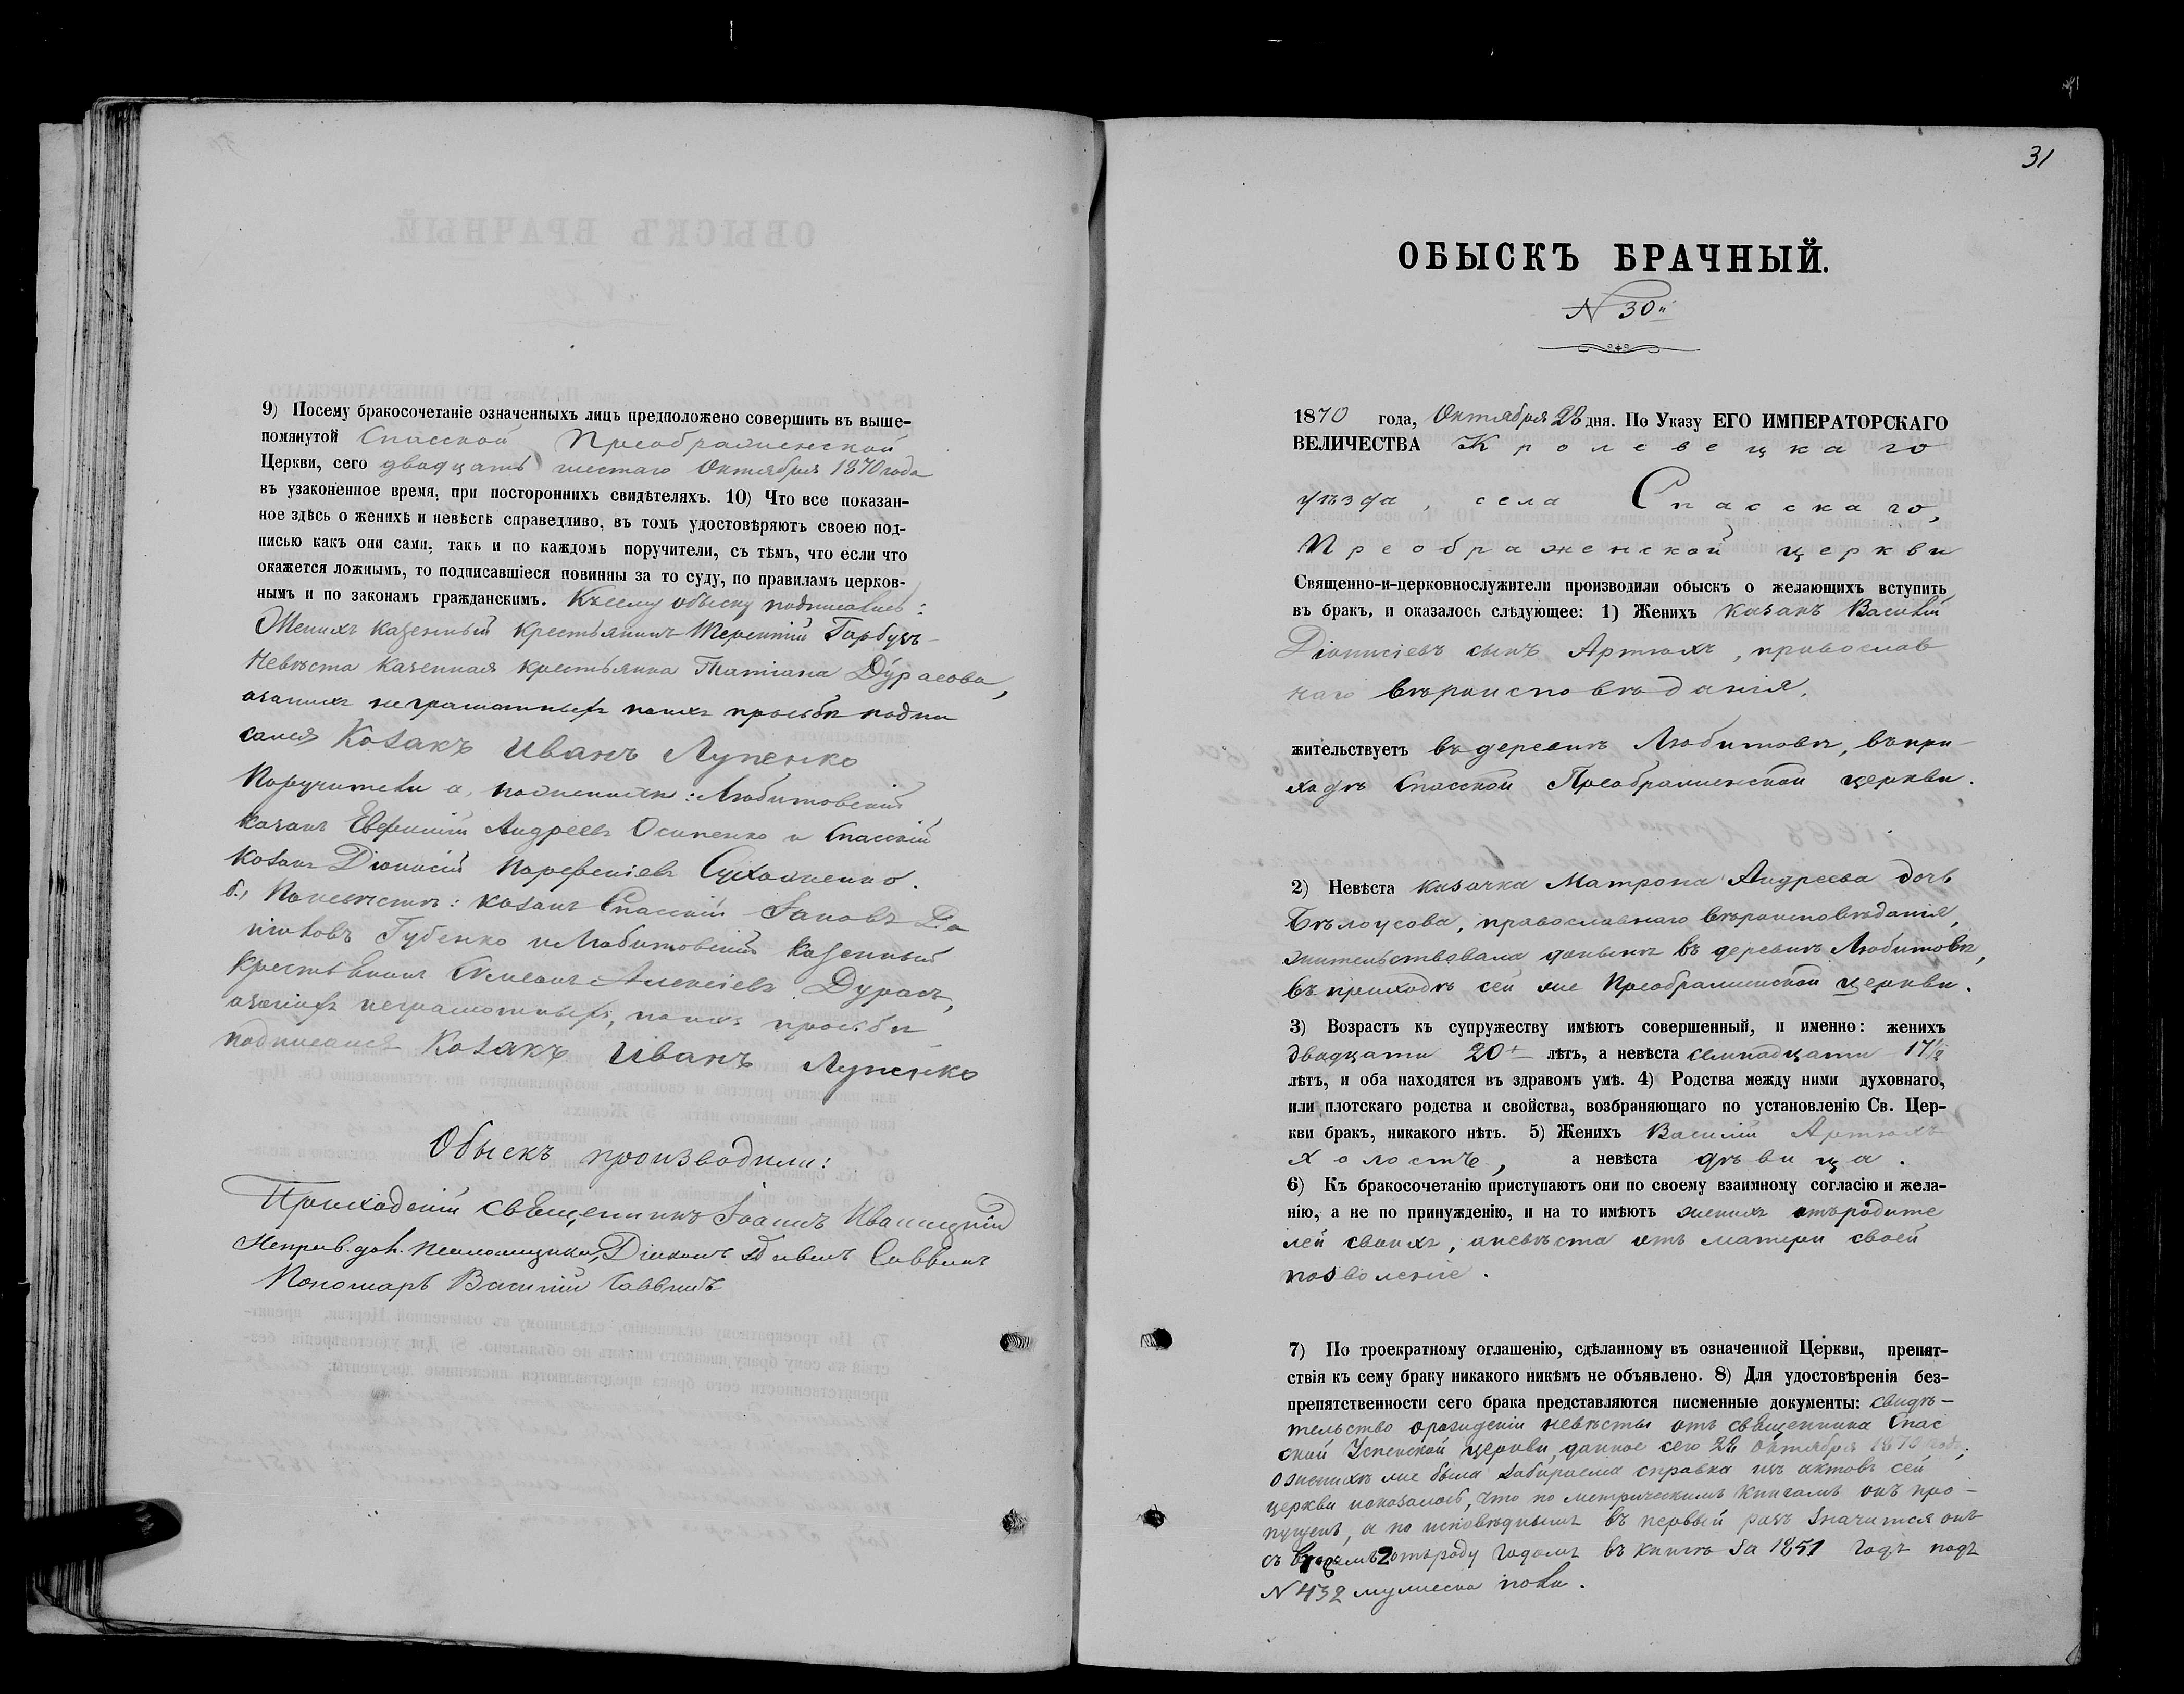 9) Посему бракосочетаніе означенныхъ лицъ предположено совершить въ выше-
помянутой Спасской Преображенской
Церкви, сего двадцать шестаго Октября 1870 года
въ узаконенное время, при постороннихъ свидѣтеляхъ. 10) Что все показан-
ное здѣсь о женихѣ и невѣстѣ справедливо, въ томъ удостовѣряютъ своею под-
писью какъ они сами, такъ и по каждомъ поручители, съ тѣмъ, что если что
окажется ложнымъ, то подписавшіеся повинны за то суду, по правиламъ церков-
нымъ и по законамъ гражданскимъ. Къ сему обыску подписались:
Женихъ казенный крестьянинъ Терентій Гарбузъ
Невѣста казенная крестьянка Татіана Дурасова,
а за нихъ неграмотныхъ по ихъ просьбѣ подпи
сался Козакъ Иванъ Лупенко
Поручители а, по женихѣ: Любитовскій
козакъ Евфимій Андреевъ Осипенко и Спасскій
козакъ Діонисій Парфеніевъ Сухоженко.
б., По невѣстѣ: козакъ Спасскій Іаковъ
Губенко и Любитовскій казенный
крестьянинъ Алексіевъ Дурасъ,
а за нихъ неграмотныхъ, по ихъ просьбѣ
подписался Козакъ Иванъ Лупенко
Обыскъ производили:
Приходскій священникъ Іоаннъ Иваницкій
Исправ. дол. псаломщика, Діаконъ Павелъ Саввинъ
Пономарь Василій Саввичъ
31
ОБЫСКЪ БРАЧНЫЙ.
N 30й
1870 года, Октября 28 дня. По Указу ЕГО ИМПЕРАТОРСКАГО
ВЕЛИЧЕСТВА Кролевецкаго
уѣзда, села Спасскаго,
Преображенской церкви
Священно-и-церковнослужители производили обыскъ о желающихъ вступить
въ бракъ, и оказалось слѣдующее: 1) Женихъ козакъ Василій
Діонисіевъ сынъ Артюхъ, православ
наго вѣроисповѣданія,
жительствуетъ въ деревнѣ Любитовѣ, въ при-
ходѣ Спасской Преображенской церкви.
2) Невѣста козачка Матрона Андреева дочь
Бѣлоусова, православнаго вѣроисповѣданія,
жительствовала донынѣ въ деревнѣ Любитовѣ,
въ приходѣ сей же Преображенской церкви.
3) Возрастъ къ супружеству имѣютъ совершенный, и именно: женихъ
двадцати 20ти лѣтъ, а невѣста семнадцати 17½
лѣтъ, и оба находятся въ здравомъ умѣ. 4) Родства между ними духовнаго,
или плотскаго родства и свойства, возбраняющаго по установленію Св. Цер-
кви бракъ, никакого нѣтъ. 5) Женихъ Василій Артюхъ
холостъ, а невѣста дѣвица.
6) Къ бракосочетанію приступаютъ они по своему взаимному согласію и жела-
нію, а не по принужденію, и на то имѣютъ женихъ отъ родите
лей своихъ, а невѣста отъ матери своей
позволеніе.
7) По троекратному оглашенію, сдѣланному въ означенной Церкви, препят-
ствія къ сему браку никакого никѣмъ не объявлено. 8) Для удостовѣренія без-
препятственности сего брака представляются писменные документы: свидѣ-
тельство о рожденіи невѣсты отъ священника Спас
ской Успенской церкви данное сего 28 Октября 1870 года;
о женихѣ же была забираема справка изъ актовъ сей
церкви и оказалось, что по метрическимъ книгамъ онъ про-
пущенъ, а по исповѣднымъ въ первый разъ значится онъ
съ 2 отъ роду годомъ въ книгѣ за 1851 годъ подъ
N 432 мужеска пола.